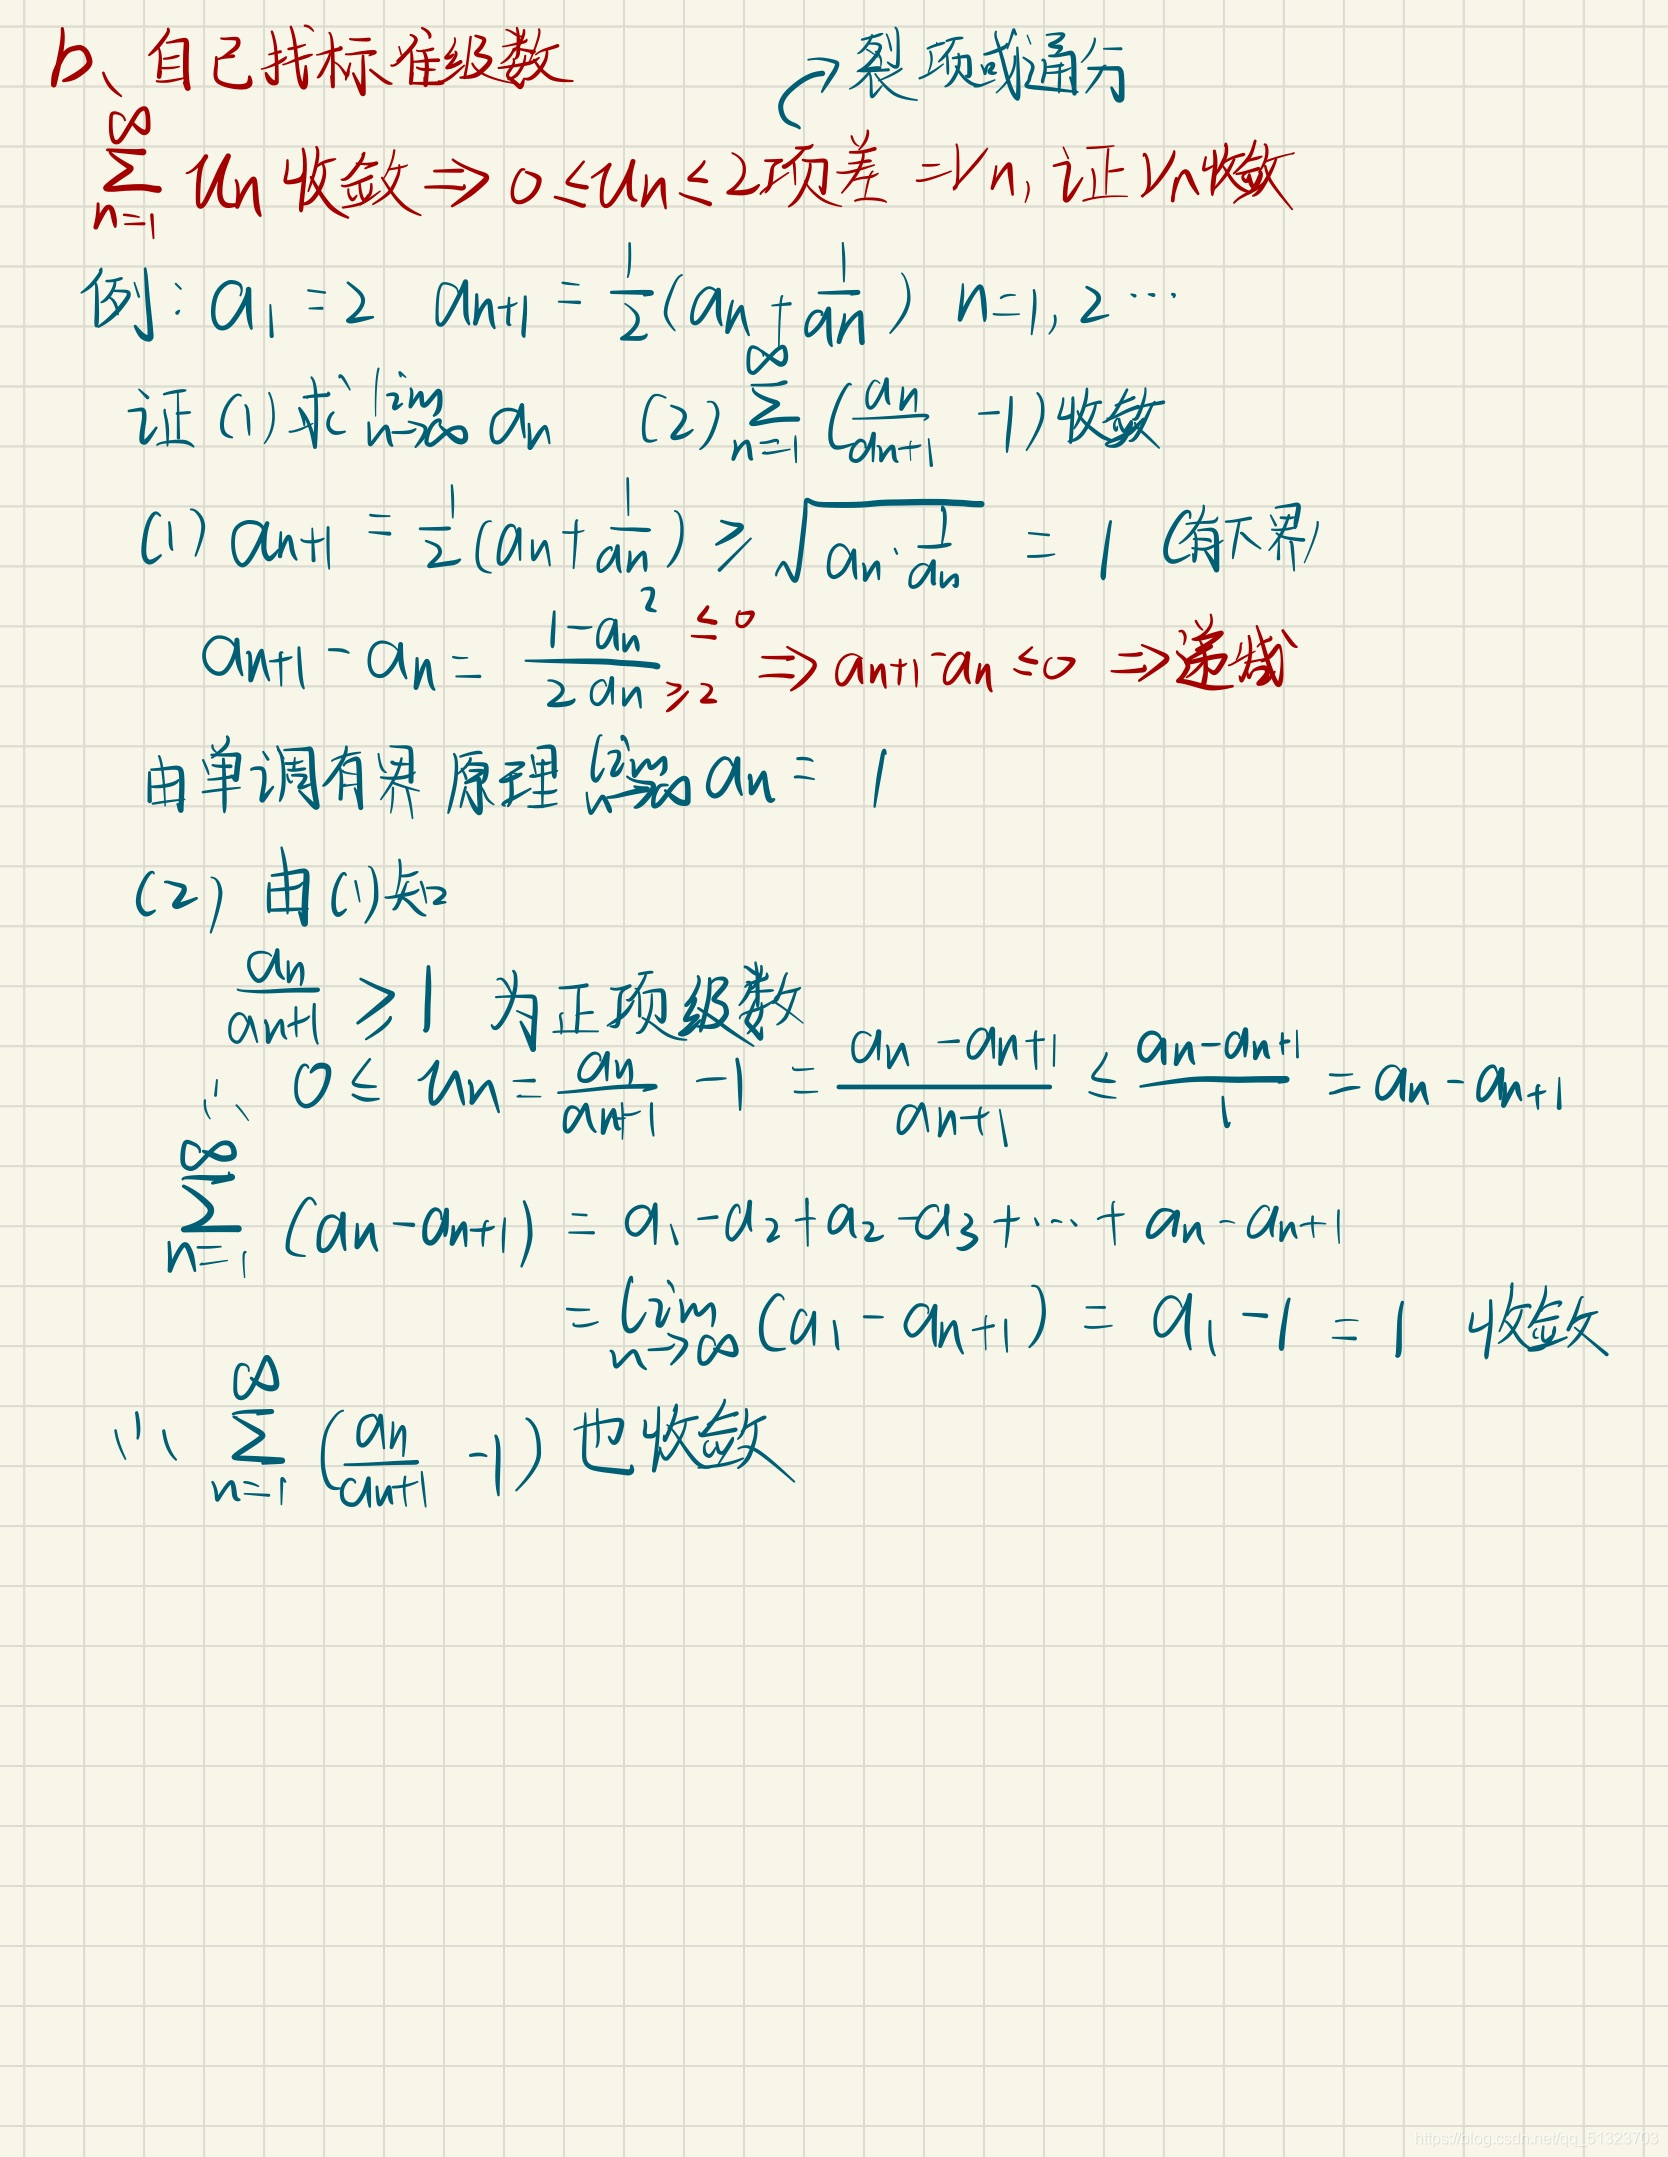 b、自己找标准级数
裂项或通分
∑_{n=1}^{∞} u_n 收敛 ⇒ 0≤u_n≤2项差 =V_n, 证V_n收敛
例: a_1=2 a_{n+1} = \frac{1}{2}(a_n+\frac{1}{a_n}) n=1,2…
证(1)求\lim_{n→∞} a_n (2)∑_{n=1}^{∞}(\frac{a_n}{a_{n+1}} -1)收敛
(1) a_{n+1} = \frac{1}{2}(a_n+\frac{1}{a_n}) ≥ \sqrt{a_n·\frac{1}{a_n}} = 1 (有下界)
a_{n+1} - a_n = \frac{1-a_n^2}{2a_n} ≤0 ≥2 ⇒ a_{n+1}-a_n ≤0 ⇒递减
由单调有界原理 \lim_{n→∞} a_n = 1
(2) 由(1)知
\frac{a_n}{a_{n+1}} ≥1 为正项级数
∴ 0≤ u_n = \frac{a_n}{a_{n+1}} -1 = \frac{a_n-a_{n+1}}{a_{n+1}} ≤ \frac{a_n-a_{n+1}}{1} = a_n-a_{n+1}
∑_{n=1}^{∞} (a_n-a_{n+1}) = a_1-a_2+a_2-a_3+…+a_n-a_{n+1}
= \lim_{n→∞} (a_1-a_{n+1}) = a_1-1 = 1 收敛
∴ ∑_{n=1}^{∞} (\frac{a_n}{a_{n+1}} -1) 也收敛
https://blog.csdn.net/qq_51323703